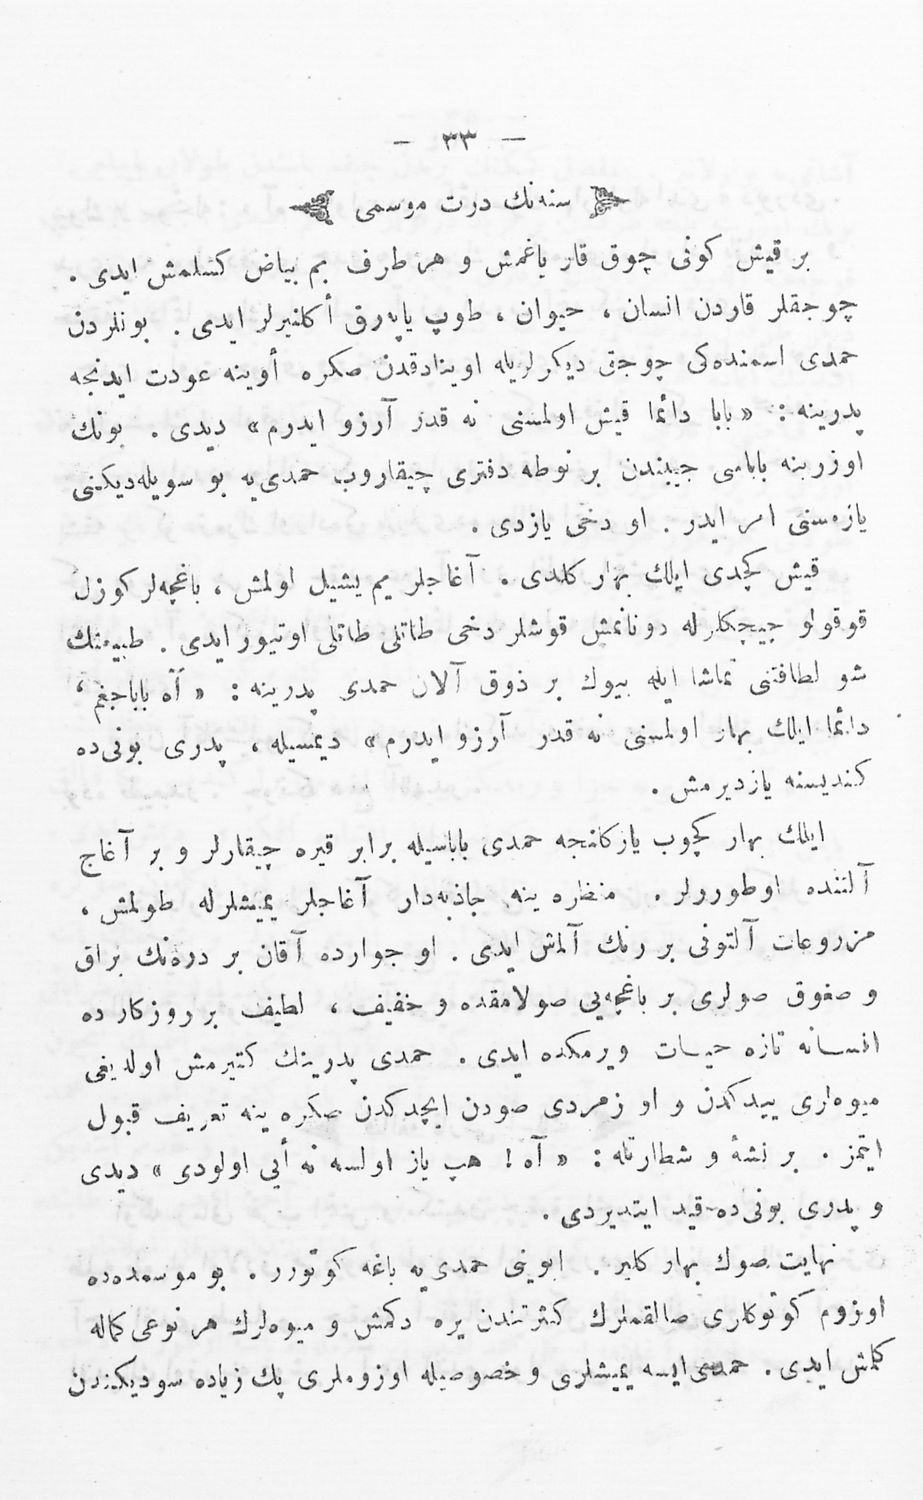 — ٣٣ —
سنه‌نك درت موسمی
بر قیش كونی چوق قار یاغمش و هر طرف بم بیاض كسلمش ایدی .
چوجقلر قاردن انسان ، حیوان ، طوپ یاپه‌رق أكلنیرلر ایدی . بونلردن
حمدی اسمنده‌كی چوجق دیكرلریله اویناد‌قدن صكره أوینه عودت ایدنجه
پدرینه : « بابا دائما قیش اولمسنی نه قدر آرزو ایدرم » دیدی . بونك
اوزرینه باباسی جیبندن بر نوطه دفتری چیقاروب حمدی‌یه بو سویله‌دیكینی
یازمسنی امر ایدر . او دخی یازدی .
قیش كچدی ایلك بهار كلدی . آغاجلر یم یشیل اولمش ، باغچه‌لر كوزل
قوقولو چیچكلرله دونانمش قوشلر دخی طاتلی طاتلی اوتیور ایدی . طبیعتك
شو لطافتنی تماشا ایله بیوك بر ذوق آلان حمدی پدرینه : « آه باباجغم ،
دائما ایلك بهار اولمسنی نه قدر آرزو ایدرم » دیمسیله ، پدری بونی‌ده
كندیسنه یازدیرمش .
ایلك بهار كچوب یاز كلنجه حمدی باباسیله برابر قیره چیقارلر و بر آغاج
آلتنده اوطورورلر . منظره ینه جاذبه‌دار آغاجلر یمیشلرله طولمش ،
مزروعات آلتونی بر رنك آلمش ایدی . او جوارده آقان بر دره‌نك براق
و صغوق صولری بر باغچه‌یی صولامقده و خفیف ، لطیف بر روزكار ده
انسانه تازه حیات ویرمكده ایدی . حمدی پدرینك كتیرمش اولدیغی
میوه‌لری ییدكدن و او زمردی صودن ایچدكدن صكره ینه تعریف قبول
ایتمز . بر نشئهٔ و شطارتله : « آه ! هپ یاز اولسه نه أیی اولودی » دیدی
و پدری بونی‌ده قید ایتدیردی .
نهایت صوك بهار كلیر . ابوینی حمدی‌یه باغه كوتورر . بو موسمده‌ده
اوزوم كوتوكلری صالقملرك كثرتندن یره دكمش و میوه‌لرك هر نوعی كماله
كلمش ایدی . حمدی ایسه یمیشلری و خصوصیله اوزوملری پك زیاده سودیكیندن